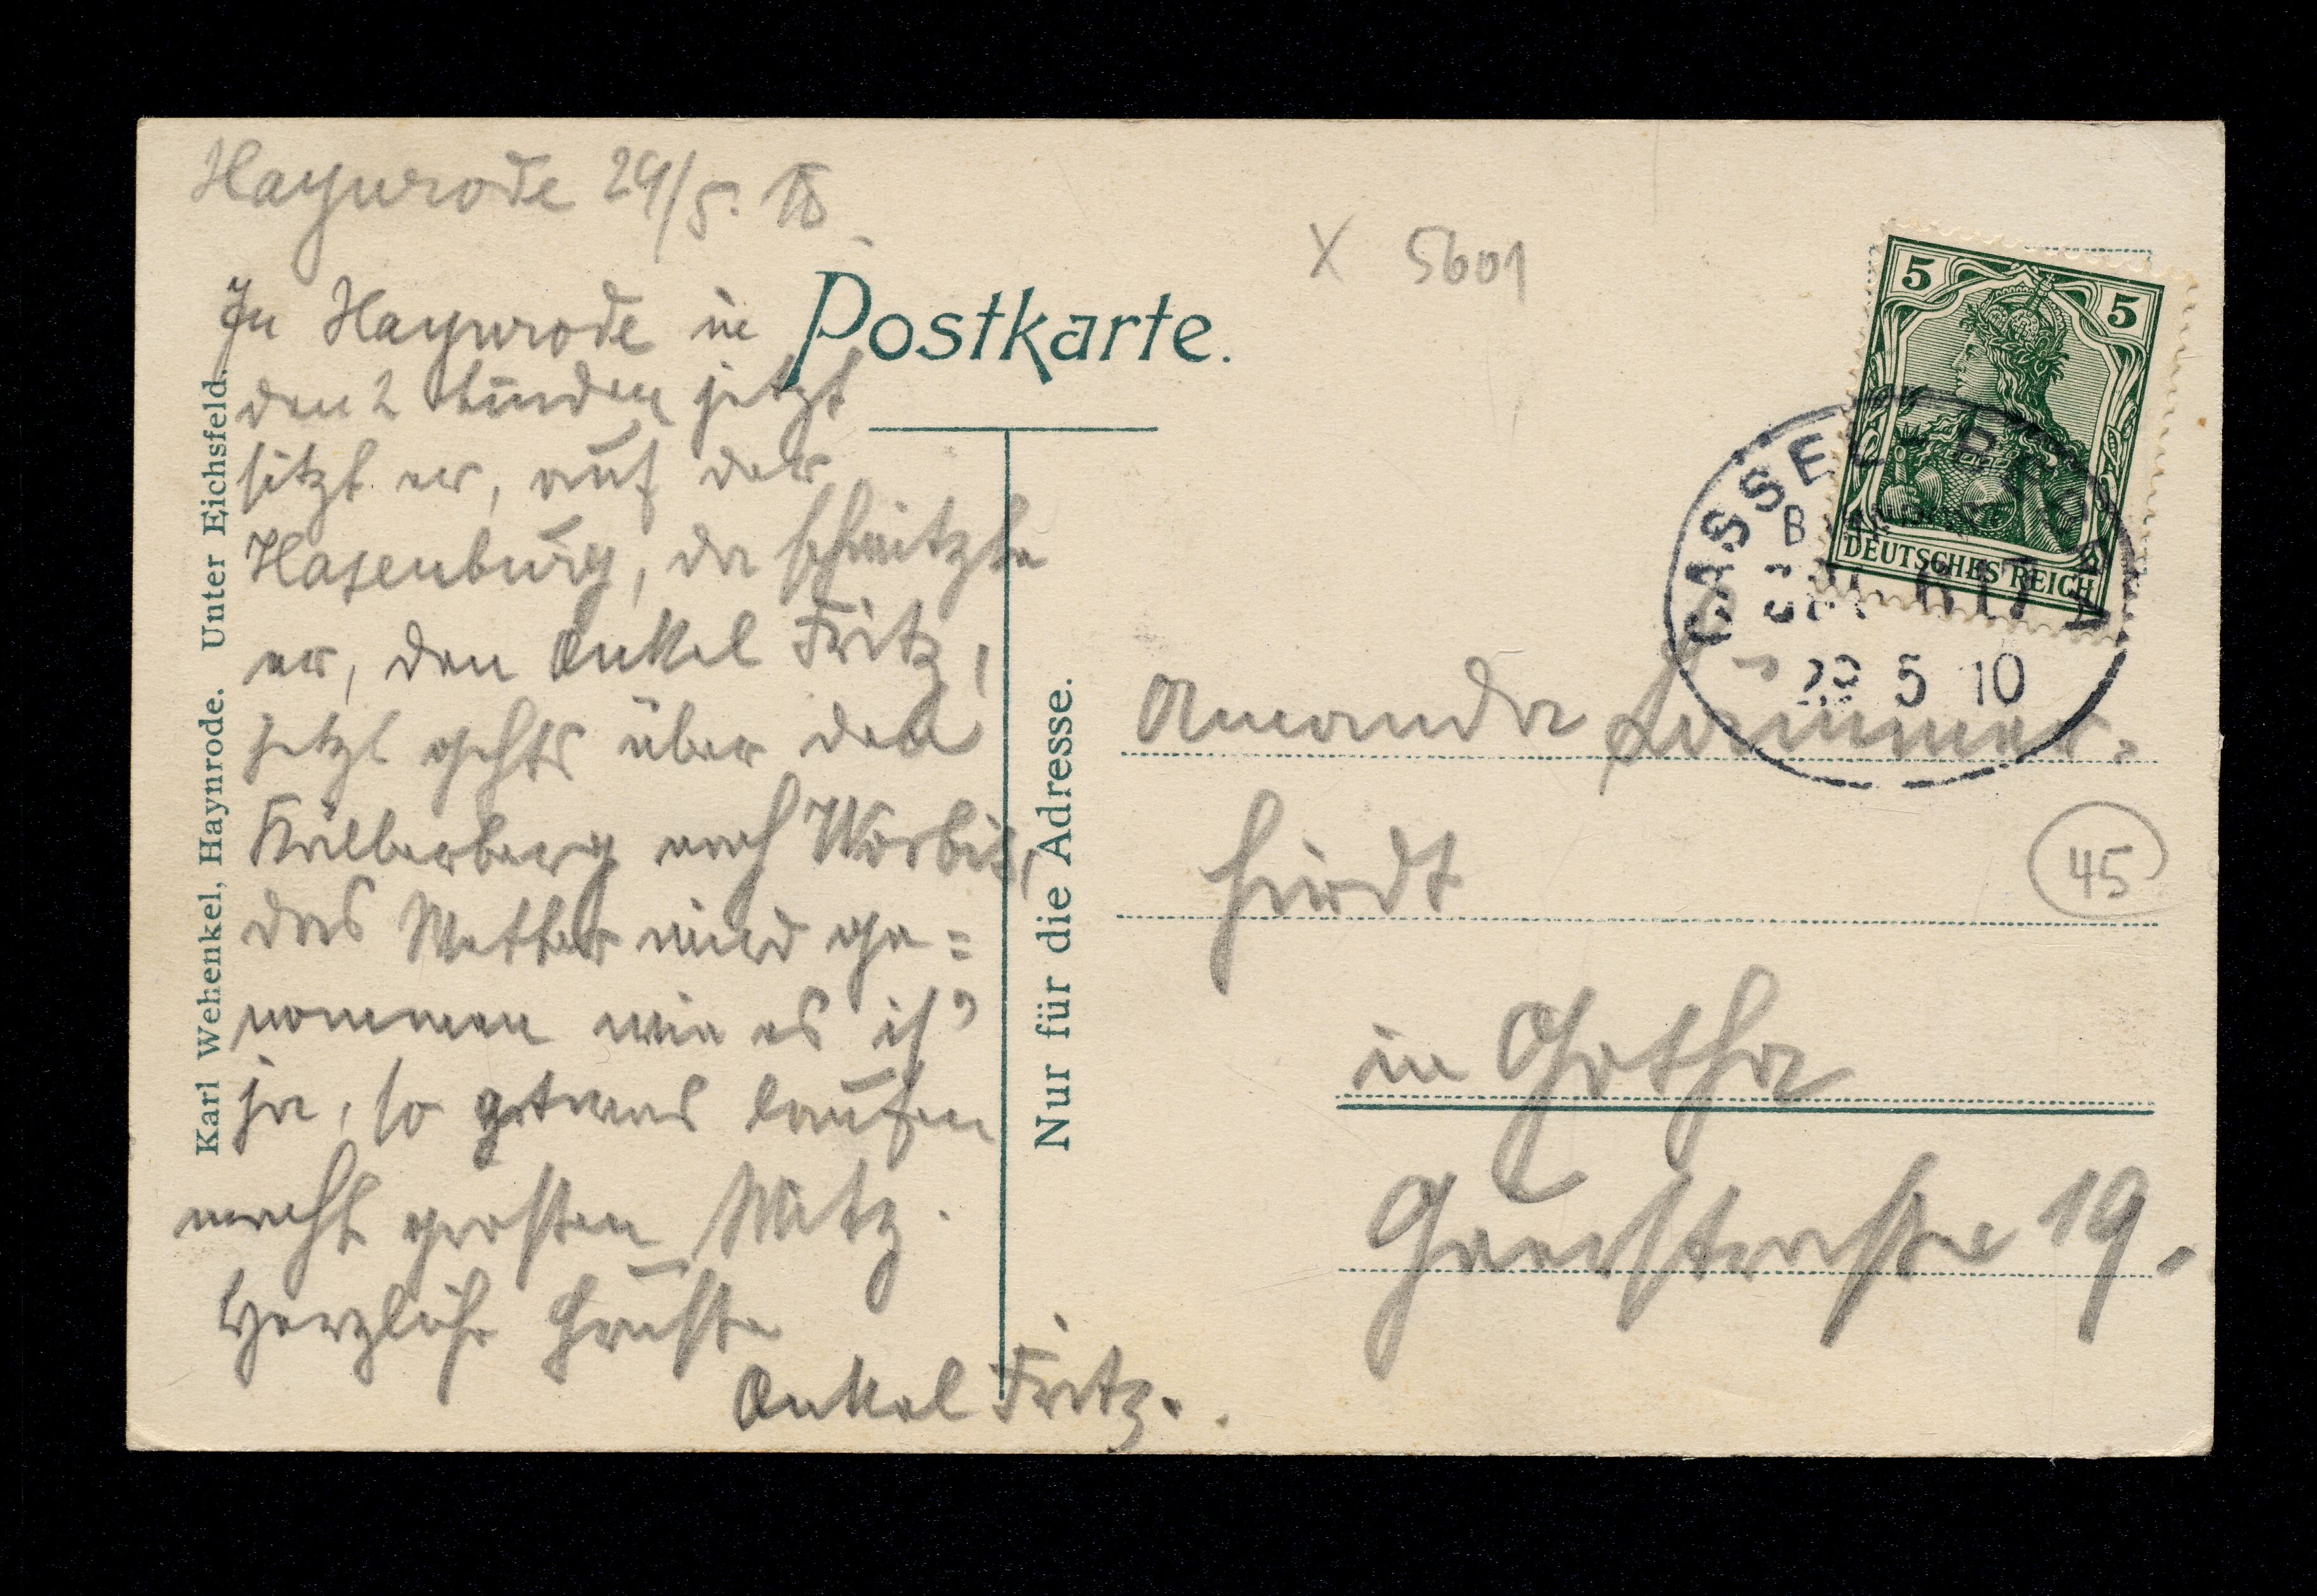 Haynrode 29/5. 10
In Haynrode in
den 2 Linden jetzt
sitzt er, auf der
Hasenburg, da schwitzte
er, den Onkel Fritz,
jetzt gehts über den
nach Worbis,
das Wetter wird ge=
nommen wie es is'
ja, so etwas laufen
macht grossen Witz.
Herzliche Grüsse
Onkel Fritz.
Karl Wehenkel, Haynrode. Unter Eichsfeld.
Postkarte.
Nur für die Adresse.
X 5601
5 5
DEUTSCHES REICH
CASSEL
29 5 10
Amanda
hirdt
45
in Gotha
19.